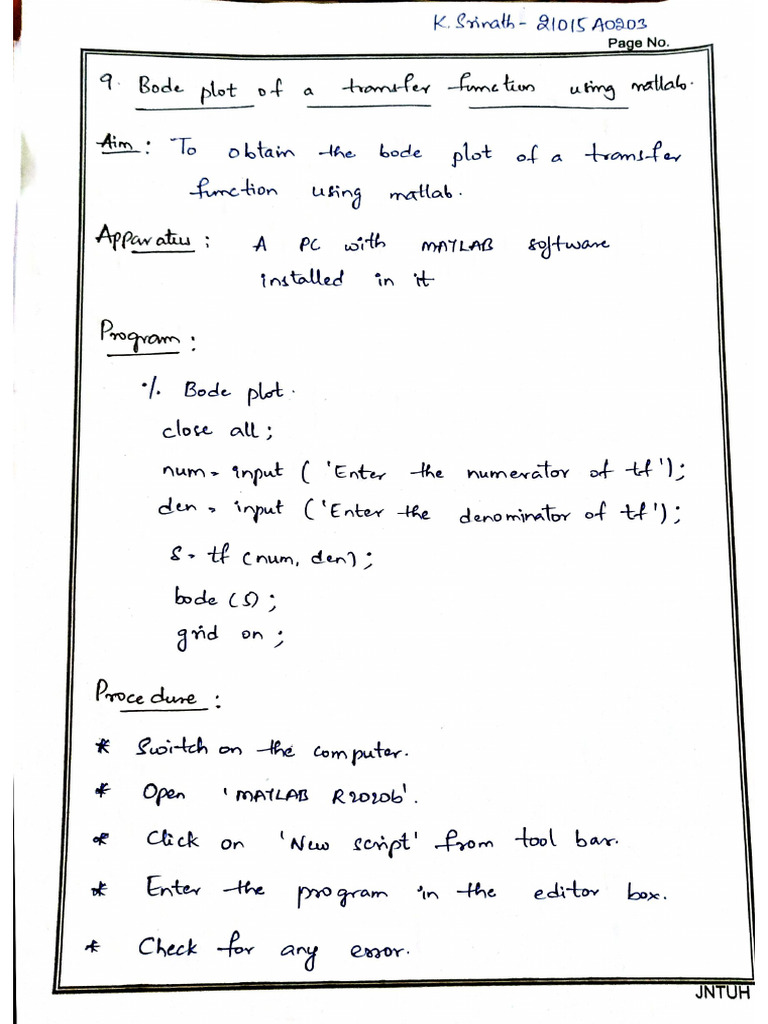 K. Srinath - 21015A0203
Page No.
9. Bode plot of a transfer function using matlab.
Aim : To obtain the bode plot of a transfer
function using matlab.
Apparatus : A PC with MATLAB software
installed in it
Program :
% Bode plot.
close all ;
num = input ( 'Enter the numerator of tf') ;
den = input ('Enter the denominator of tf') ;
s = tf (num, den) ;
bode (s) ;
grid on ;
Procedure :
* Switch on the computer.
* Open 'MATLAB R2020b'.
* Click on 'New script' from tool bar.
* Enter the program in the editor box.
* Check for any error.
JNTUH